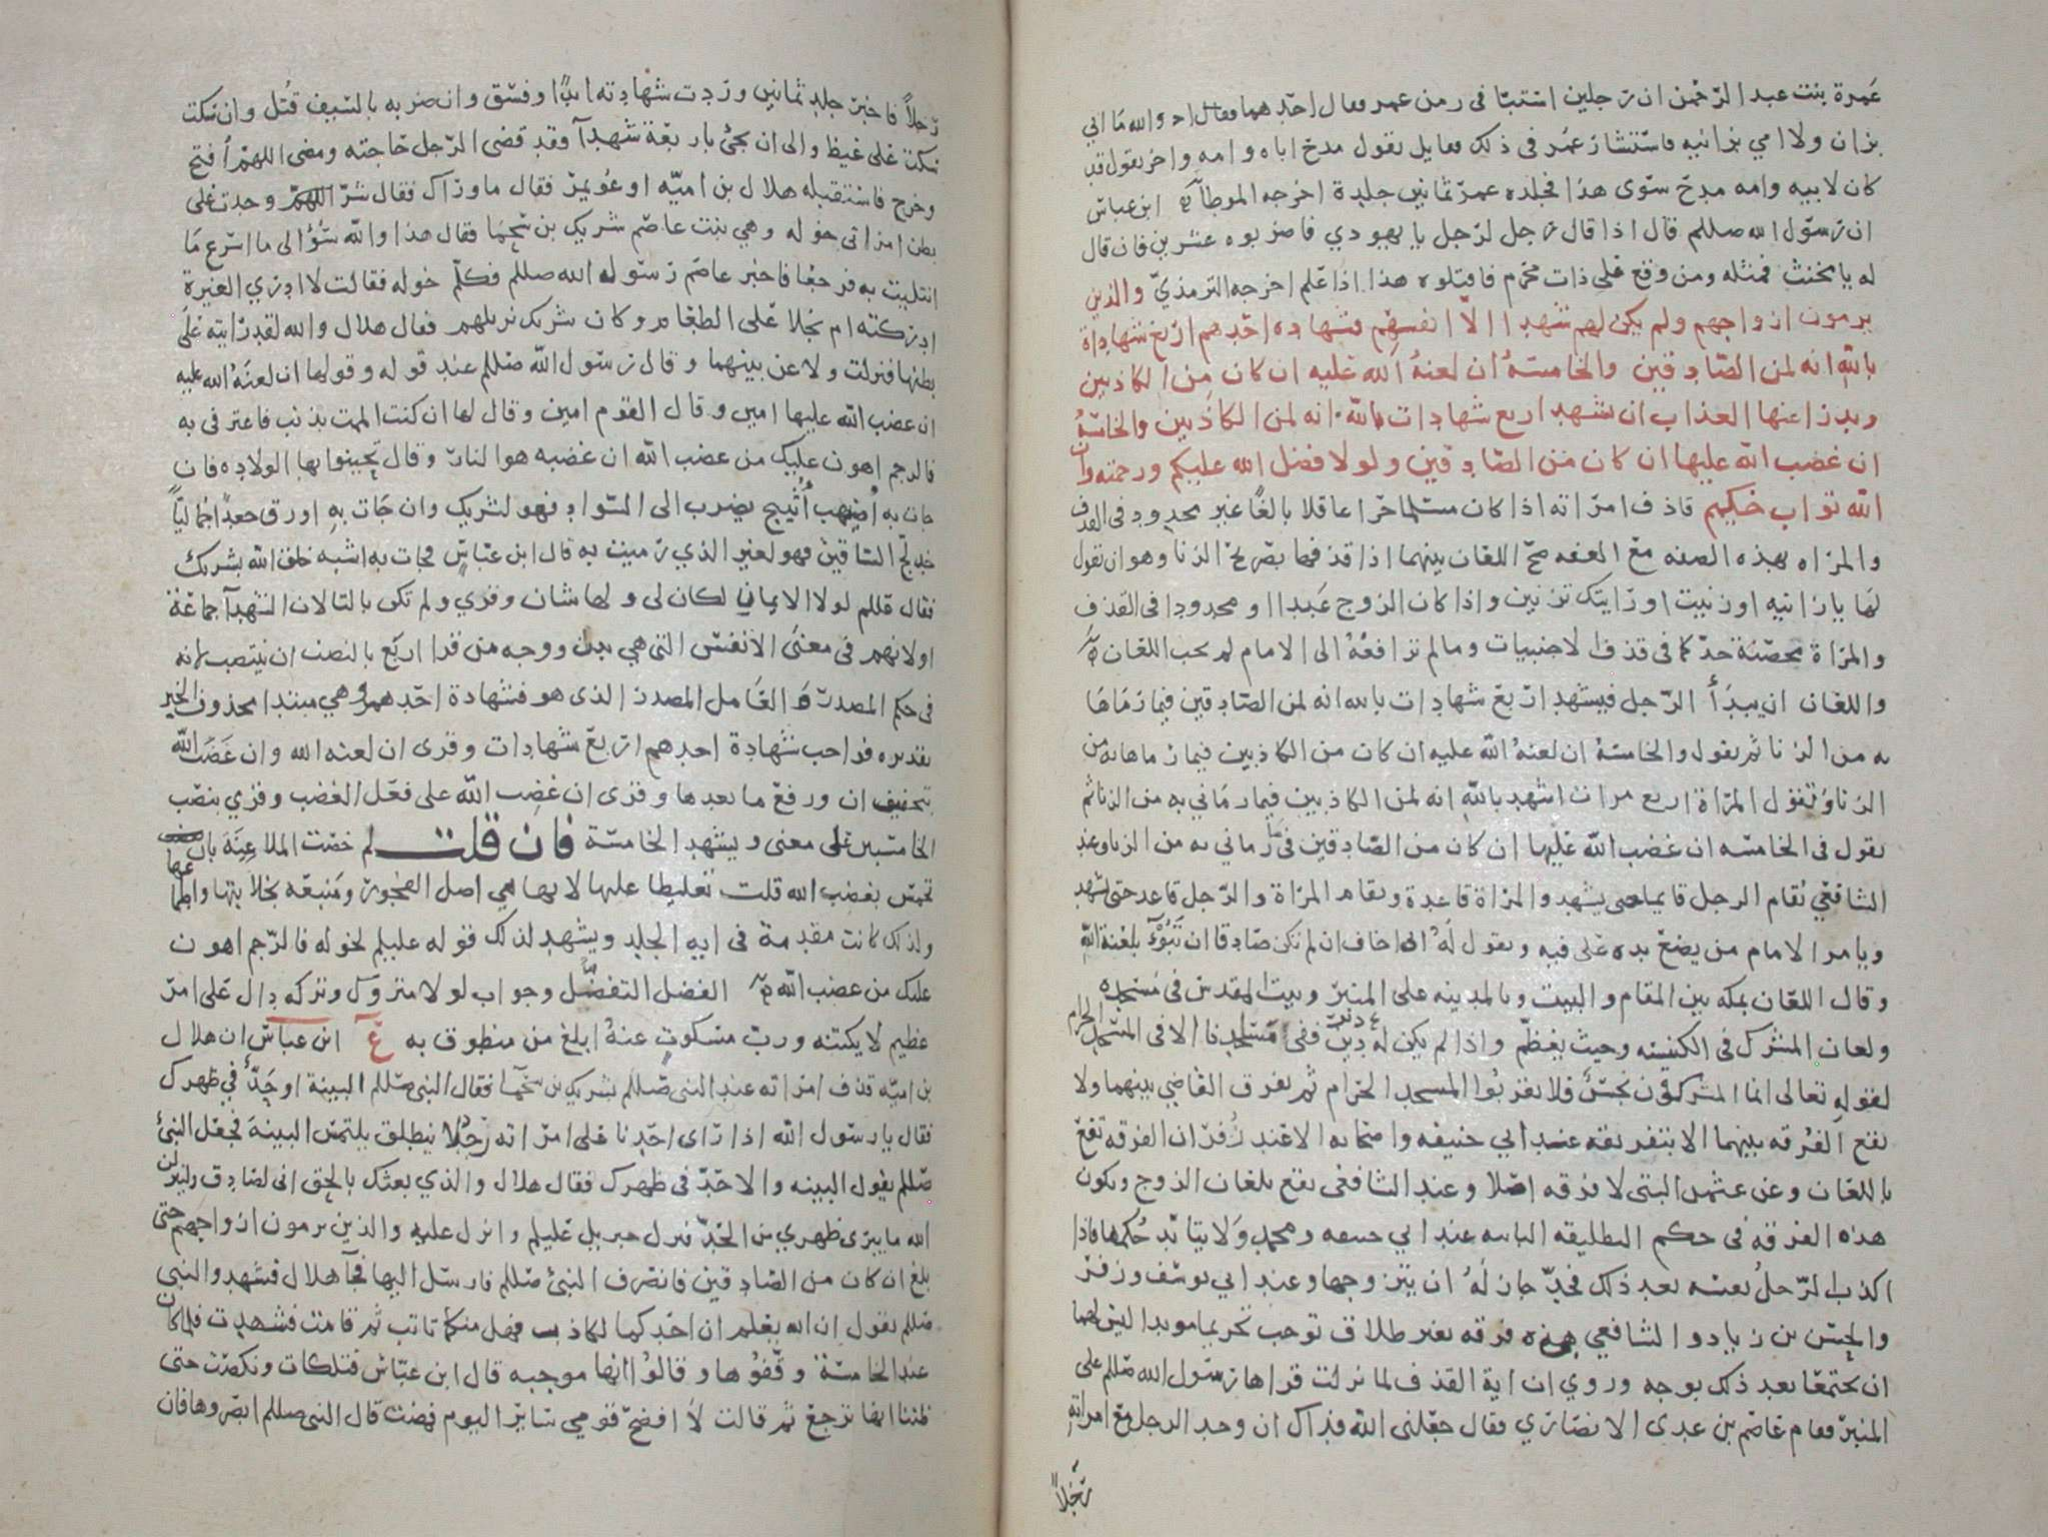 عمرة بنت عبد الرحمن ان رجلين استبّا فى زمن عمر فقال احدهما والله ما ابي
بزان ولا امي بزانيه فاستشار عمر فى ذلك فقايل يقول مدح اباه وامه واخر يقول قد
كان لابيه وامه مدح سوى هذا فجلده عمر ثمانين جلدة اخرجه الموطا ابن عباس
ان رسول الله صللم قال اذا قال رجل لرجل يا يهودي فاضربوه عشرين فان قال
له يا مخنث فمثله ومن وقع على ذات محرم فاقتلوه هذا اذا علم اخرجه الترمذي والذين
يرمون ازواجهم ولم يكن لهم شهدا الا انفسهم فشهاده احدهم اربع شهاداة
بالله انه لمن الصادقين والخامسة ان لعنة الله عليه ان كان من الكاذبين
ويدرا عنها العذاب ان تشهد اربع شهادات بالله انه لمن الكاذبين والخامسة
ان غضب الله عليها ان كان من الصادقين ولولا فضل الله عليكم ورحمته وان
الله تواب حكيم قاذف امراته اذا كان مسلما حرا عاقلا بالغا غير محدود فى القذف
والمراه بهذه الصفه مع العفه صح اللعان بينهما اذا قذفها بصريح الزنا وهو ان يقول
لها يا زانيه او زنيت او رايتك تزنين واذا كان الزوج عبدا او محدودا فى القذف
والمراة محصنة حد كما فى قذف الاجنبيات وما لم ترافعه الى الامام لم يجب اللعان
واللعان ان يبدأ الرجل فيشهد اربع شهادات بالله انه لمن الصادقين فيما رماها
به من الزنا ثم يقول والخامسة ان لعنة الله عليه ان كان من الكاذبين فيما رماها به من
الزنا وتقول المراة اربع مرات اشهد بالله انه لمن الكاذبين فيما رماني به من الزنا ثم
يقول فى الخامسه ان غضب الله عليها ان كان من الصادقين فى ما رماني به من الزنا وعند
الشافعي يقام الرجل قايما حتى يشهد والمراة قاعدة ويقام المراة والرجل قاعد حتى تشهد
ويامر الامام من يضع يده على فيه ويقول له اني اخاف ان لم تكن صادقا ان تبوء بلعنة الله
وقال اللعان بمكه بين المقام والبيت وبالمدينه على المنبر وبيت المقدس فى مسجده
ولعان المشرك فى الكنيسه وحيث يعظم واذا لم يكن له دين ففى مساجدنا الا فى المسجد الحرام
لقوله تعالى انما المشركون نجس فلا يقربوا المسجد الحرام ثم يفرق القاضي بينهما ولا
تقع الفرقه بينهما الا بتفريقه عند ابي حنيفه واصحابه الا عند زفر ان الفرقه تقع
باللعان وعن عثمن البتى لا فرقه اصلا وعند الشافعى تقع بلعان الزوج وتكون
هذه الفرقه فى حكم التطليقه الباينه عند ابي حنيفه ومحمد ولا يتابد حكمها فاذا
اكذب الرجل نفسه بعد ذلك فحد جاز له ان يتزوجها وعند ابي يوسف وزفر
والحسن بن زياد والشافعي هذه فرقه بغير طلاق توجب تحريما موبدا ليس لهما
ان يجتمعا بعد ذلك بوجه وروي ان اية القذف لما نزلت قراها رسول الله صللم على
المنبر فقام عاصم بن عدى الانصاري فقال جعلنى الله فداك ان وجد الرجل مع امراته
رجلا
رجلاً فاخبر جلد ثمانين وردت شهادته ابدا وفسق وان ضربه بالسيف قتل وان سكت
سكت على غيظ والى ان يجئ باربعة شهدآ وقد قضى الرجل حاجته ومضى اللهم افتح
وخرج فاستقبله هلال بن اميه او عويمر فقال ما وراك فقال شر اللهم وجدت على
بطن امراتى خوله وهي بنت عاصم شريك بن سحما فقال هذا والله سؤالى ما اسرع ما
ابتليت به فرجعا فاخبر عاصم رسوله الله صللم فكلم خوله فقالت لا ادري الغيرة
ادركته ام بخلا على الطعام وكان شريك نزيلهم فقال هلال والله لقد رايته على
بطنها فنزلت ولاعن بينهما وقال رسول الله صللم عند قوله وقولها ان لعنه الله عليه
ان غضب الله عليها امين وقال القوم امين وقال لها ان كنت الممت بذنب فاعترفى به
فالرجم اهون عليك من غضب الله ان غضبه هو النار وقال تحينوا بها الولاده فان
جات به اصيهب اثيبج يضرب الى السواد فهو لشريك وان جات به اورق جعدا جماليا
خدلج الساقين فهو لغير الذي رميت به قال ابن عباس فجات به اشبه خلق الله بشريك
فقال صللم لولا الايمان لكان لى ولها شان وقري ولم تكن بالتا لان الشهدآ جماعة
او لانهم فى معنى الانفس التى هي بدل ووجه من قرا اربع بالنصب ان ينتصب لانه
فى حكم المصدر والعامل المصدر الذى هو فشهادة احدهم وهي مبتدا محذوف الخبر
تقديره فواجب شهادة احدهم اربع شهادات وقرى ان لعنه الله وان غضب الله
بتخفيف ان ورفع ما بعدها وقرى ان غضب الله على فعل الغضب وقري بنصب
الخامستين على معنى ويشهد الخامسة فان قلت لم خصت الملاعنة بان
تخمس بغضب الله قلت تغليظا عليها لانها هي اصل الفجور ومنبعه بخلابتها واطماعها
ولذلك كانت مقدمة فى ايه الجلد ويشهد لذلك قوله عليلم لخوله فالرجم اهون
عليك من غضب الله الفضل التفضل وجواب لولا متروك وتركه دال على امر
عظيم لا يكتنه ورب مسكوت عنه ابلغ من منطوق به ابن عباس ان هلال
بن اميه قذف امراته عند النبى صللم بشريك بن سحما فقال النبى صللم البينة او حد في ظهرك
فقال يا رسول الله اذا راى احدنا على امراته رجلا ينطلق يلتمس البينة فجعل النبئ
صللم يقول البينه والا حد فى ظهرك فقال هلال والذي بعثك بالحق انى لصادق ولينزلن
الله ما يبرى ظهري من الحد فنزل جبريل عليلم وانزل عليه والذين يرمون ازواجهم حتى
بلغ ان كان من الصادقين فانصرف النبئ صللم فارسل اليها فجآ هلال فشهد والنبى
صللم يقول ان الله يعلم ان احدكما لكاذب فهل منكما تائب ثم قامت فشهدت فلما كان
عند الخامسة وقفوها وقالوا انها موجبه قال ابن عباس فتلكات ونكصت حتى
ظننا انها ترجع ثم قالت لا افضح قومي ساير اليوم فمضت قال النبى صللم ابصروها فان